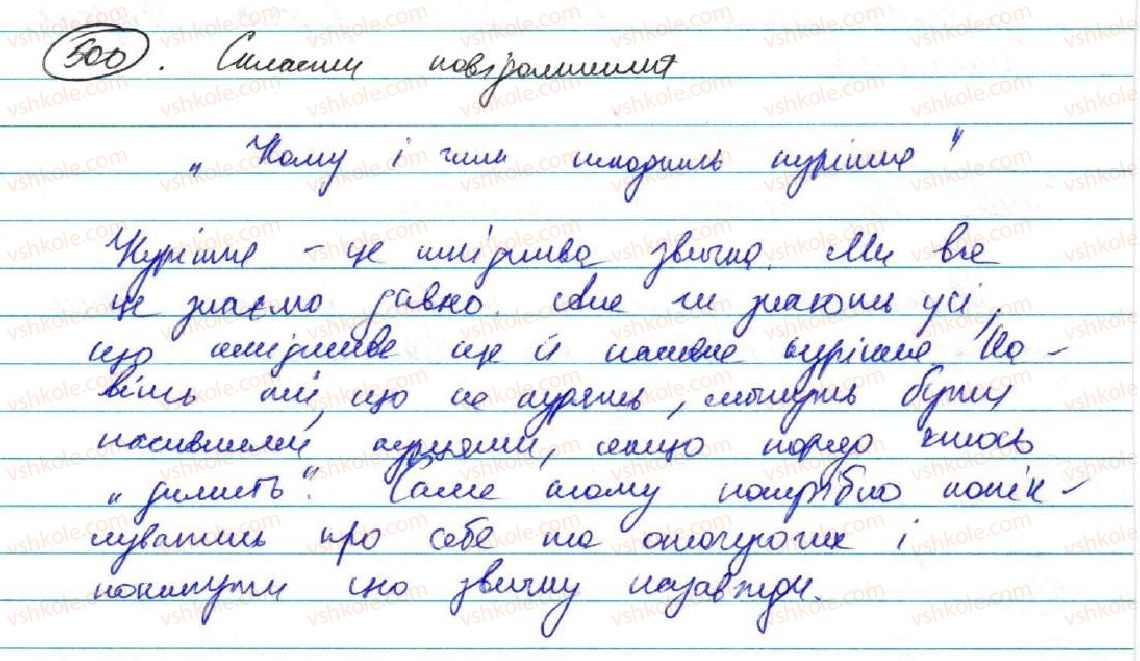 500. Скласти повідомлення
„Кому і чим шкодить куріння"
Куріння – це шкідлива звичка. Ми все
це знаємо давно. Але чи знають усі,
що шкідливе ще й пасивне куріння. На-
віть ті, що не курять, можуть бути
пасивними курцями, якщо поряд хтось
„димить". Саме тому потрібно попік-
луватись про себе та оточуючих і
покинути цю звичку назавжди.